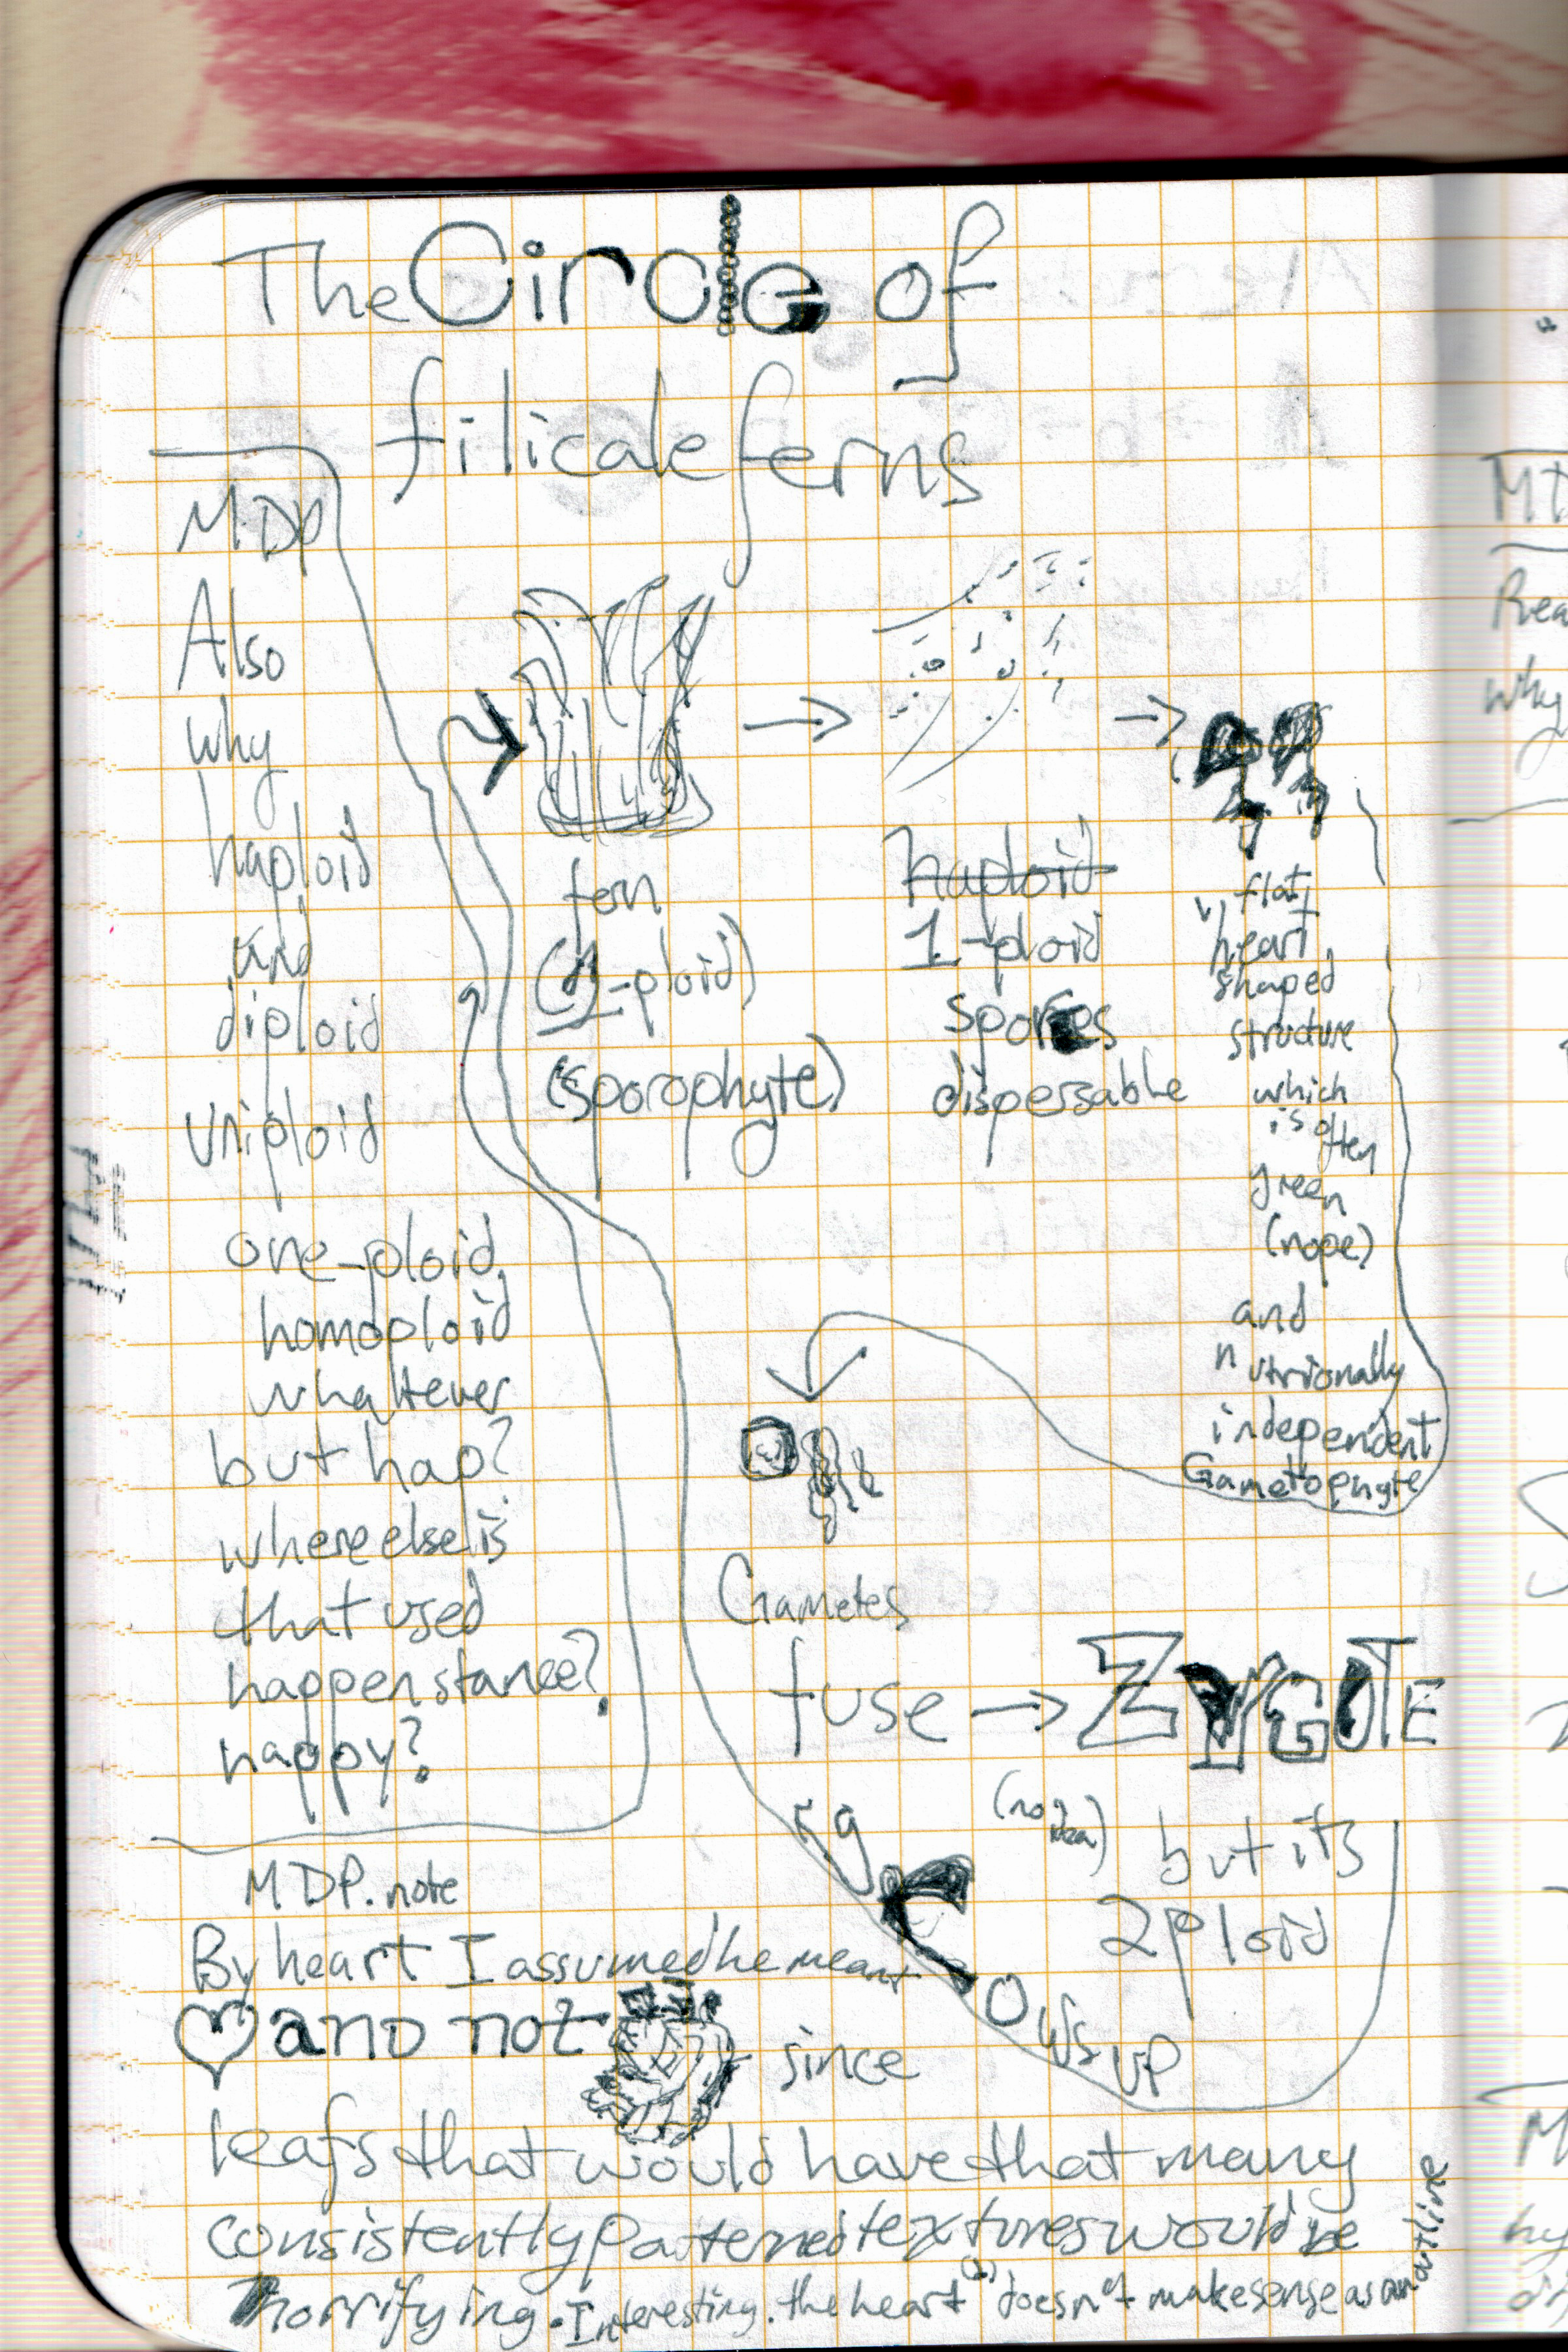 The Circle of
filicale ferns
MDP
Also
why
haploid
and
diploid
Uniploid
one-ploid,
homoploid
whaltever
but hap?
where else is
that used
happenstance?
happy?
fern
-ploid)
(sporophyte)
haploid
1-ploid
spores
dispersable
flat,
heart
shaped
structure
which
is often
green
(nope)
and
nutrionally
independent
Gametophyte
Gametes
fuse → ZYGOTE
(no idea)
but its
2ploid
grows up
MDP. note
By heart I assumed he meant
♡ and not
since
leafs that would have that many
consistently patterned textures would be
horrifying. Interesting. the heart doesn't make sense as an outline
Rea
why